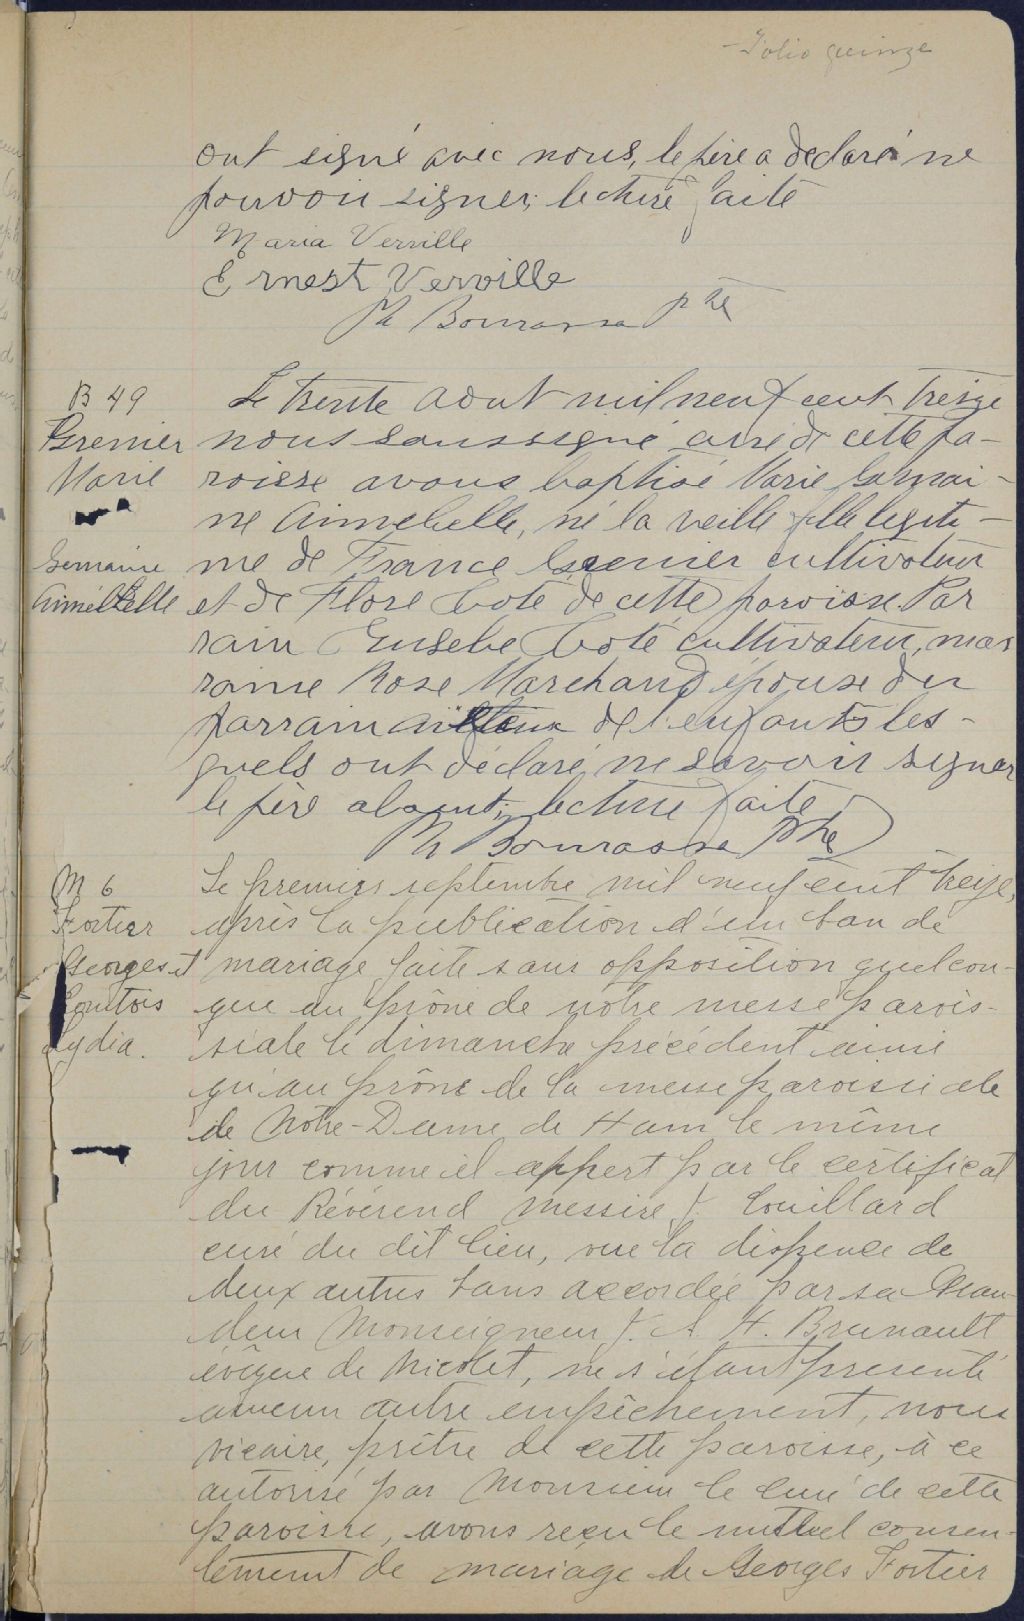 Folio quinze
ont signé avec nous, le père a declaré ne
pouvoir signer; lecture faite
Maria Verville
Ernest Verville
Ph Bourassa ptre
B 49
Grenier
Marie
Germaine
Annebelle
Le trente aout mil neuf cent treize
nous soussigné curé de cette pa-
roisse avons baptisé Marie Germai-
ne Annebelle, né la veille fille legiti-
me de France Grenier cultivateur
et de Flore Coté de cette paroisse. Par
rain Eusebe Coté cultivateur, mar
raine Rose Marchand épouse du
parrain de l'enfant les-
quels ont déclaré ne savoir signer
le père absent; lecture faite
Ph Bourassa ptre
M 6
Fortier
Georges et
Courtois
Lydia.
Le premier septembre mil neuf cent treize,
après la publication d'un ban de
mariage faite sans opposition quelcon-
que au prône de notre messe parois-
siale le dimanche précédent ainsi
qu'au prône de la messe paroissiale
de Notre-Dame de Ham le même
jour comme il appert par le certificat
du Révérend messire J. Couillard
curé du dit lieu, vue la dispence de
deux autres bans accordée par sa Gran-
deur Monseigneur J. A. H. Brunault
évêque de Nicolet, ne s'étant presenté
aucun autre empêchement, nous
vicaire, prêtre de cette paroisse, à ce
autorisé par Monsieur le Curé de cette
paroisse, avons reçu le mutuel consen-
tement de mariage de Georges Fortier